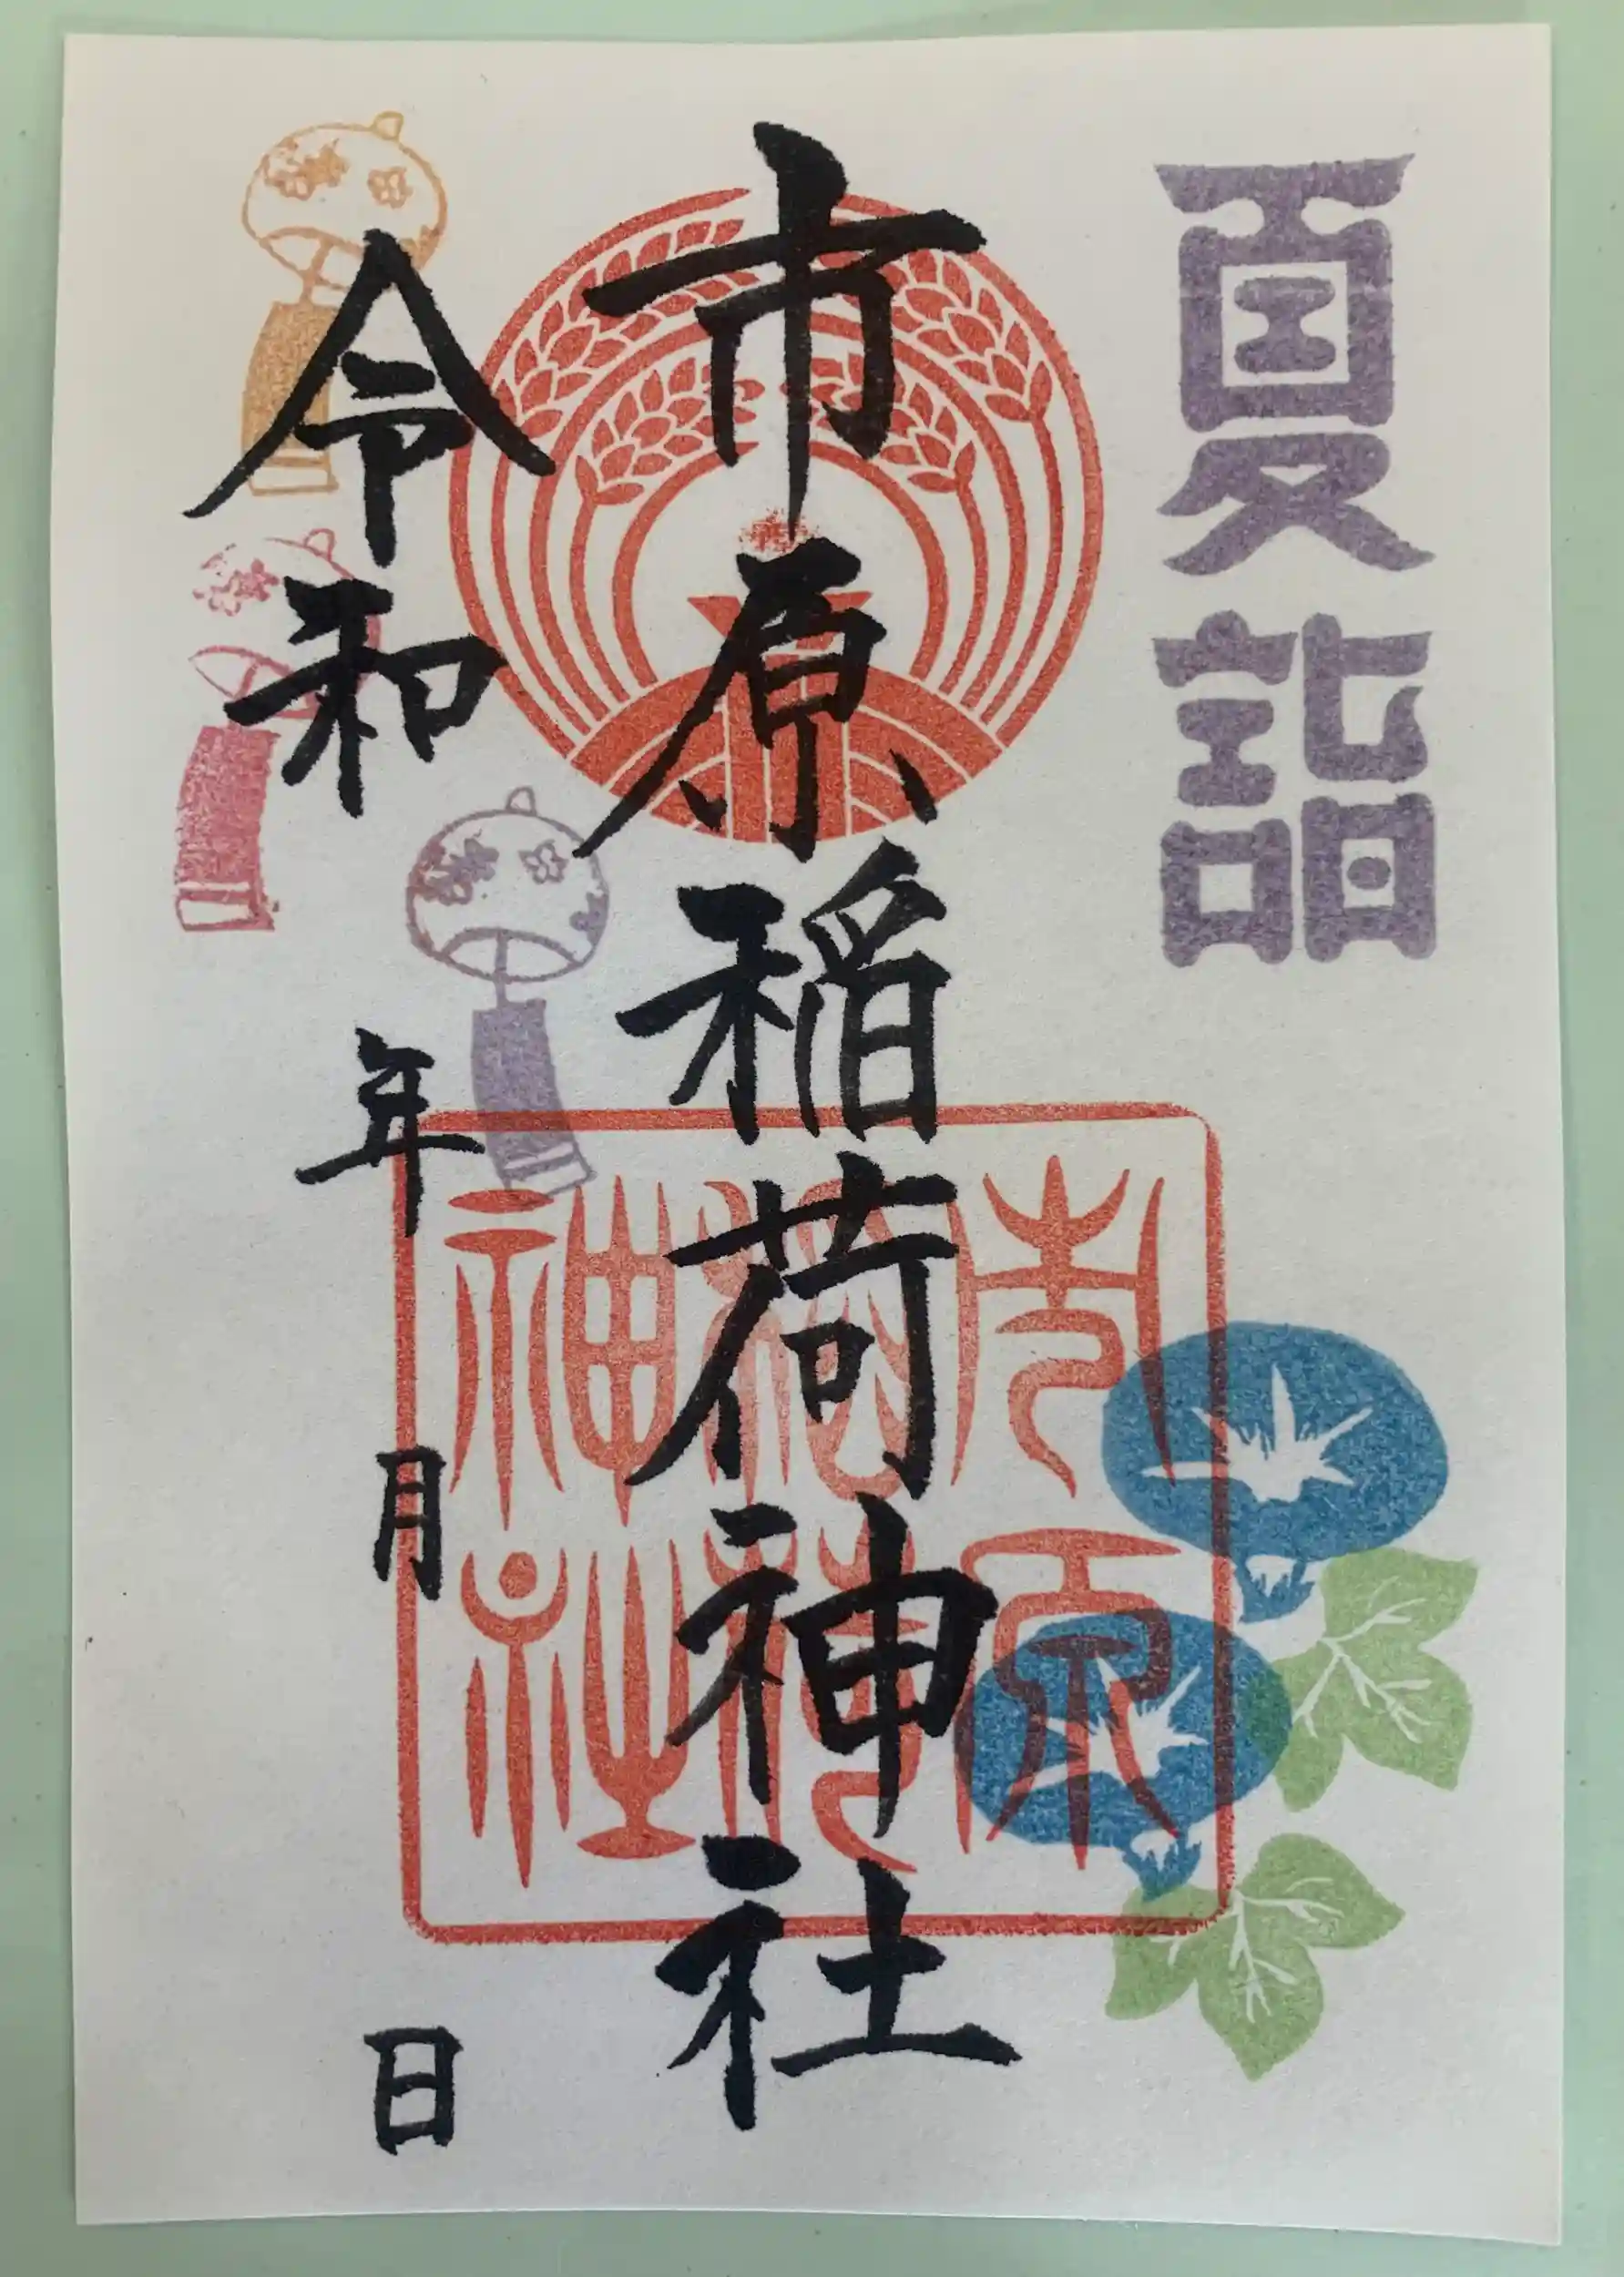 夏詣
市原稲荷神社
市原
稲荷
神社
令和 年 月 日